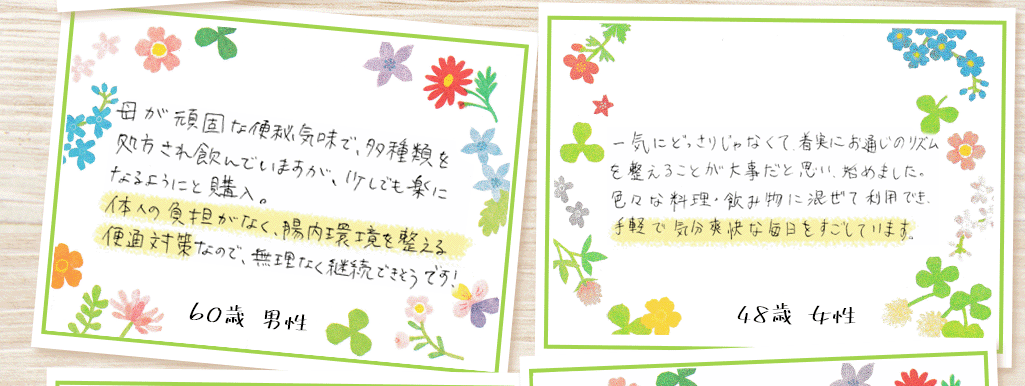 母が頑固な便秘気味で、多種類を
処方され飲んでいますが、少しでも楽に
なるようにと購入。
体への負担がなく、腸内環境を整える
便通対策なので、無理なく継続できそうです!
60歳 男性
一気にどっさりじゃなくて、着実にお通じのリズム
を整えることが大事だと思い、始めました。
色々な料理・飲み物に混ぜて利用でき、
手軽で気分爽快な毎日をすごしています。
48歳 女性